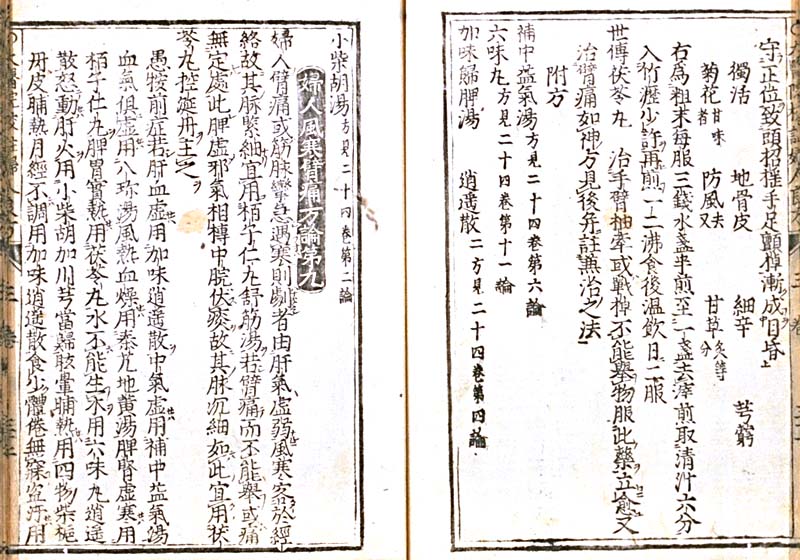 守正位致頭招搖手足顫掉漸成目昏
獨活 地骨皮 細辛 芎藭
菊花甘味者 防風去叉 甘草炙等分
右為粗末每服三錢水盞半煎至一盞去滓煎取清汁六分
入竹瀝少許再煎一二沸食後溫飲日二服
世傳茯苓丸 治手臂抽牽或戰棹不能舉物服此藥立愈又
治臂痛如神方見後并註兼治之法
附方
補中益氣湯方見二十四卷第六論
六味丸方見二十四卷第十一論
加味歸脾湯 逍遙散二方見二十四卷第四論
小柴胡湯方見二十四卷第二論
婦人風寒臂痛方論第九
婦人臂痛或筋脉攣急遇寒則劇者由肝氣虛弱風寒客於經
絡故其脉緊細宜用栢子仁丸舒筋湯若臂痛而不能舉或痛
無定處此脾虛邪氣相搏中脘伏痰故其脉沉細如此宜用茯
苓丸控涎丹主之
愚按前症若肝血虛用加味逍遙散中氣虛用補中益氣湯
血氣俱虛用八珍湯風熱血燥用秦艽地黃湯脾腎虛寒用
栢子仁丸脾胃實熱用茯苓丸水不能生木用六味丸逍遙
散怒動肝火用小柴胡加川芎當歸眩暈晡熱用四物柴梔
丹皮晡熱月經不調用加味逍遙散食少體倦無寐盜汗用